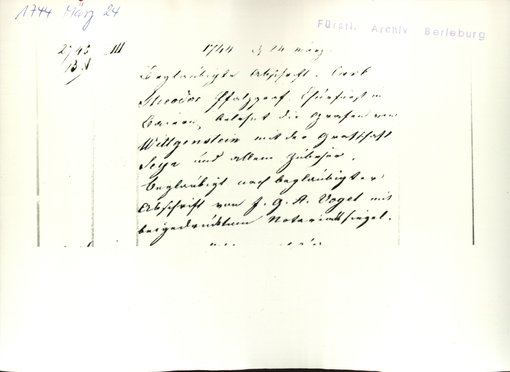 1744 März 24
Fürstl. Archiv Berleburg
1744 d. 24 März
Beglaubigte Abschrift. Carl
Theodor Pfalzgraf, Churfürst in
Baiern, belehnt die Grafen von
Wittgenstein mit der Grafschaft
Seyn und allem Zubehör.
beglaubigt nach beglaubigter
Abschrift von J. G. A. Vogel mit
beigedrucktem Notariatssiegel.